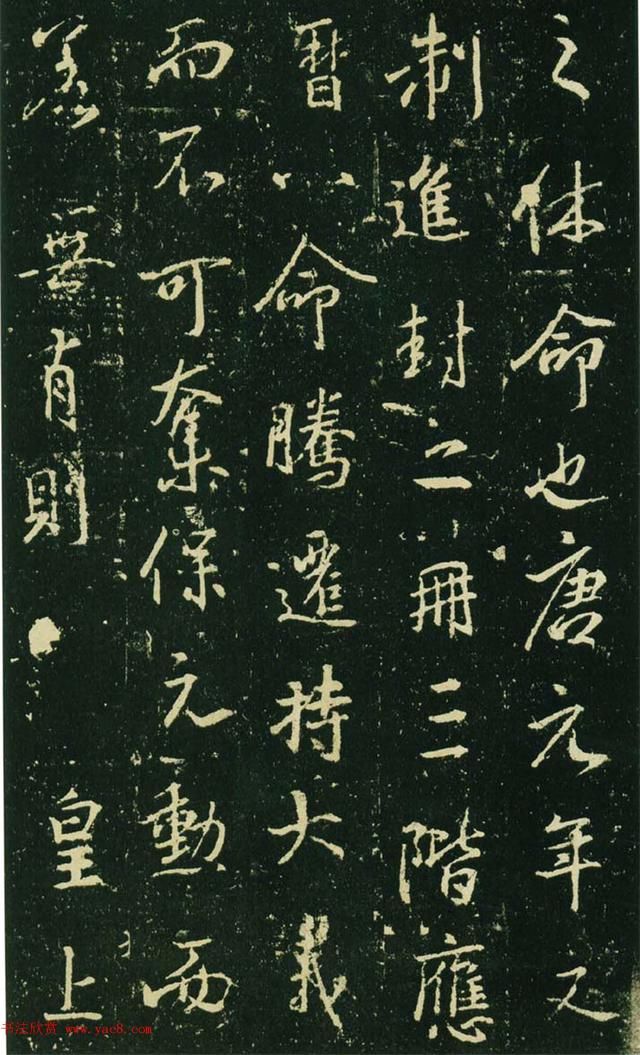 之休命也唐元年又
制進封二冊三階應
曆八命騰遷持大義
而不可奪保元勲而
恙無有則 皇上
书法欣赏 www.yac8.com